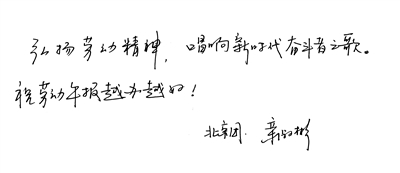 弘扬劳动精神，唱响新时代奋斗者之歌。
祝劳动午报越办越好！
北京团